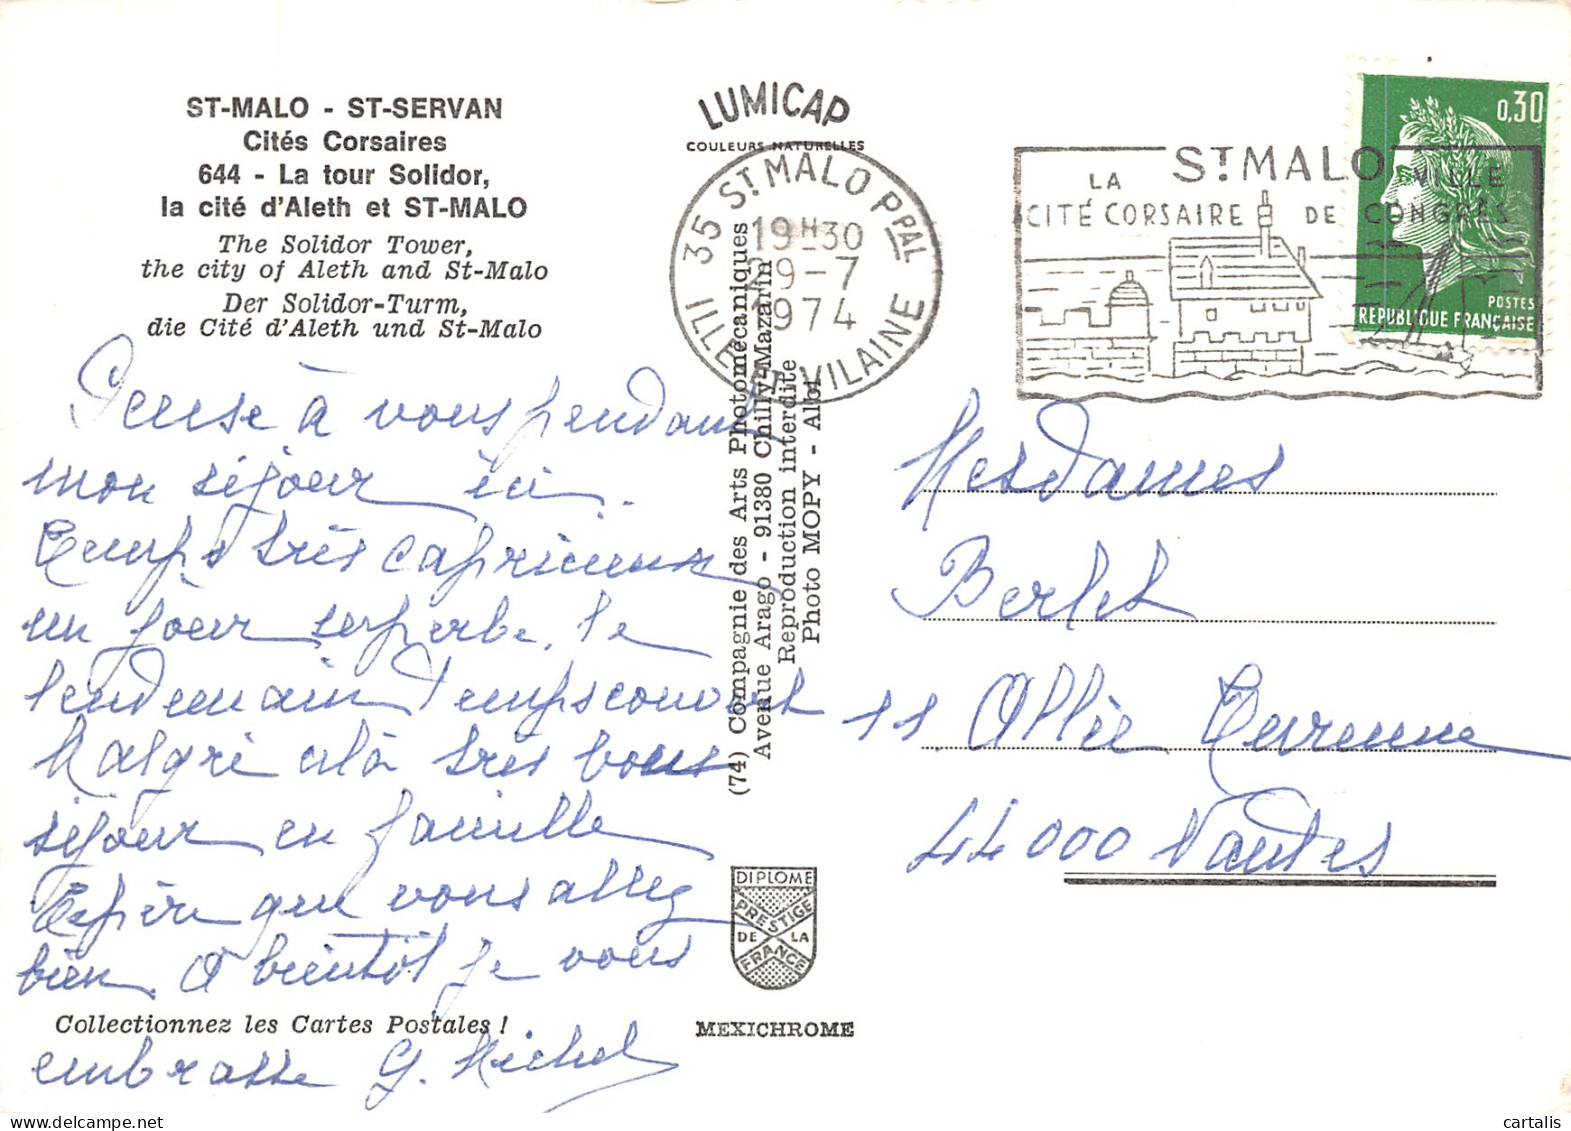 ST-MALO - ST-SERVAN
Cités Corsaires
644 - La tour Solidor,
la cité d'Aleth et ST-MALO
The Solidor Tower,
the city of Aleth and St-Malo
Der Solidor-Turm,
die Cité d'Aleth und St-Malo
Pense à vous pendant
mon séjour ici.
Temps très capricieux
un jour superbe, le
lendemain temps couvert
Malgré celà très bons
séjour en famille
Espère que vous allez
bien. A bientôt je vous
embrasse G. Michel
Collectionnez les Cartes Postales !
LUMICAP
COULEURS NATURELLES
35 ST MALO PPAL
19H30
9-7
1974
ILLE ET VILAINE
(74) Compagnie des Arts Photomécaniques
Avenue Arago - 91380 Chilly-Mazarin
Reproduction interdite
Photo MOPY - Albi
DIPLOME
PRESTIGE
DE LA
FRANCE
MEXICHROME
ST MALO
LA VILLE
CITÉ CORSAIRE DE CONGRÈS
0,30
POSTES
REPUBLIQUE FRANÇAISE
Mesdames
Berlet
11 Allée Turenne
44000 Nantes
cartalis